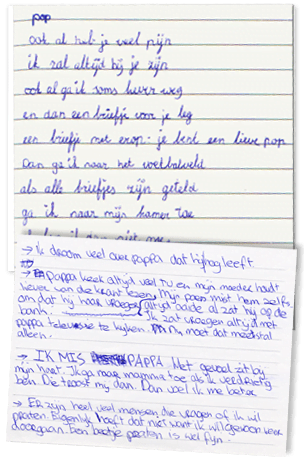 pop
ook al heb je veel pijn
ik zal altijd bij je zijn
ook al ga ik soms heerr weg
en dan een briefje voor je leg
een briefje met erop: je bent een lieve pop
Dan ga ik naar het voetbalveld
als alle briefjes zijn geteld
ga ik naar mijn kamer toe
→ Ik droom veel over pappa dat hij nog leeft.
→ Pappa keek altijd veel TV en mijn moeder houdt
liever van de krant lezen. Mijn broer mist hem zelfs
om dat hij haar vroeger altijd aaide als zat hij op de
bank. Ik zat vroeger altijd met
pappa televisie te kijken. Nu moet dat meestal
alleen.
→ IK MIS PAPPA. Het gevoel zit bij
mijn hart. Ik ga naar mamma toe als ik verdrietig
ben. Die troost mij dan. Dan voel ik me beter.
→ Er zijn heel veel mensen die vragen of ik wil
praten. Eigenlijk hoeft dat niet want ik wil gewoon weer
doorgaan. Een beetje praten is wel fijn.